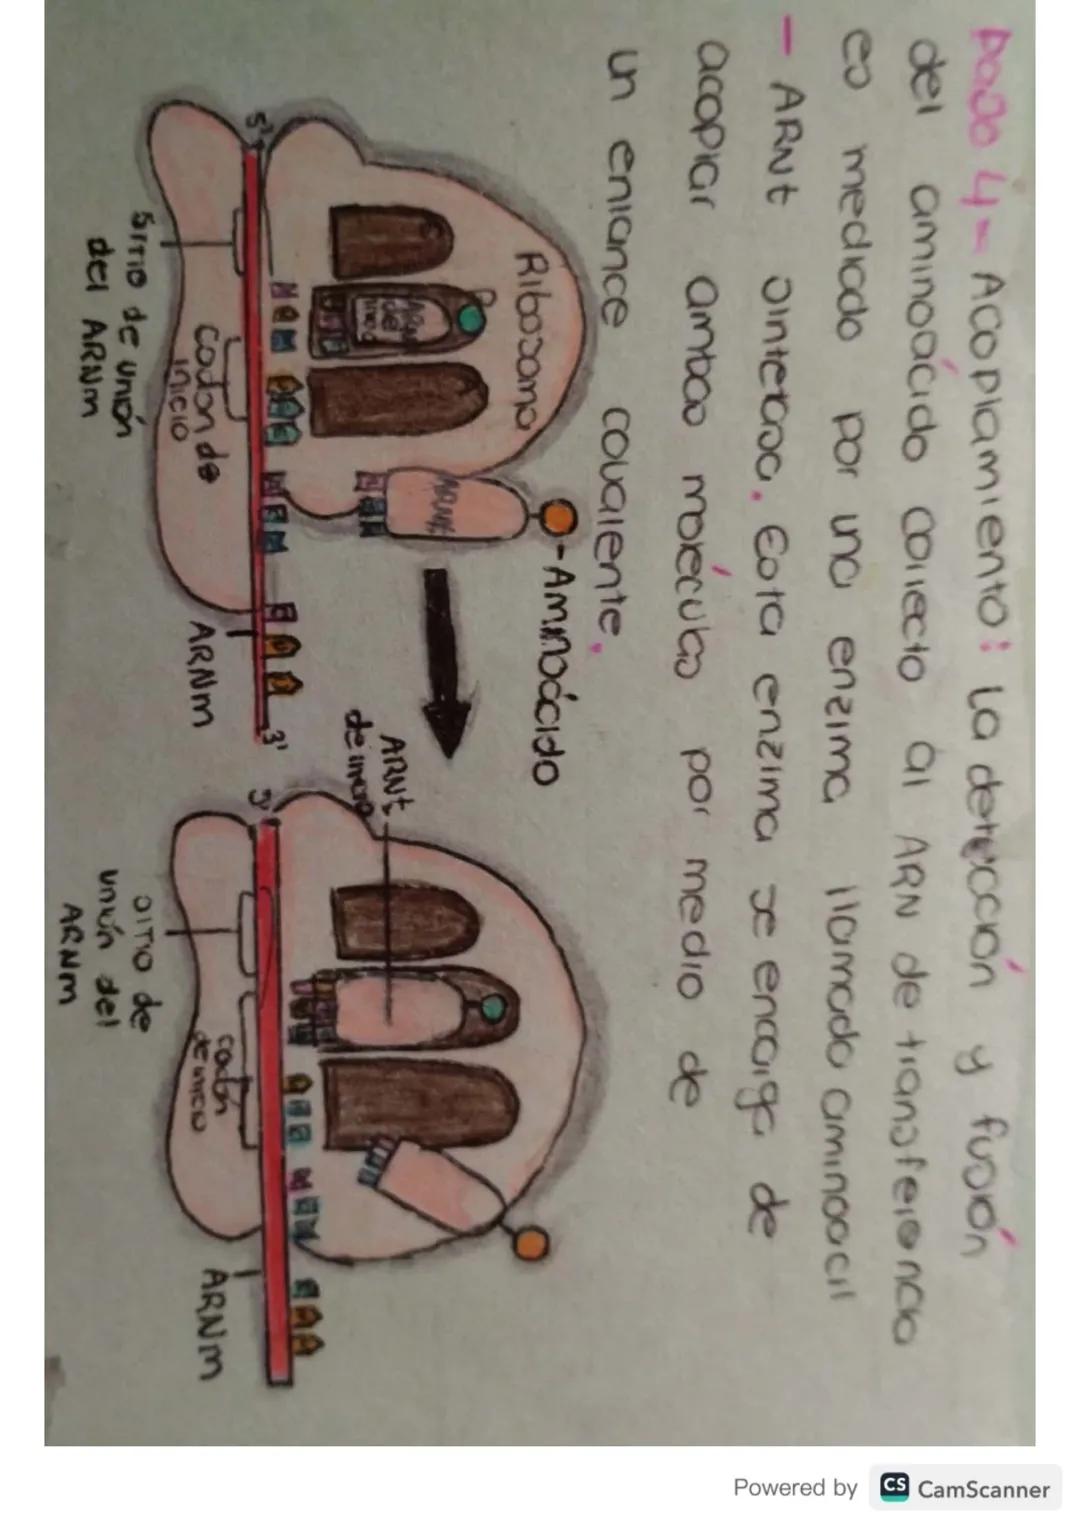 Paso 4- Acoplamiento: La detección y fusión
del aminoácido correcto al ARN de transferencia
es mediado por una enzima llamada aminoacil
- ARNt sintetasa. Esta enzima se encarga de
acoplar ambas moléculas por medio de
un enlance covalente.
Ribosoma
-Aminoácido
P
5'
3'
Codon de
inicio
ARNm
Sitio de unión
del ARNm
ARNt
de inicio
5'
codon
de inicio
ARNm
sitio de
unión del
ARNm
Powered by CS CamScanner